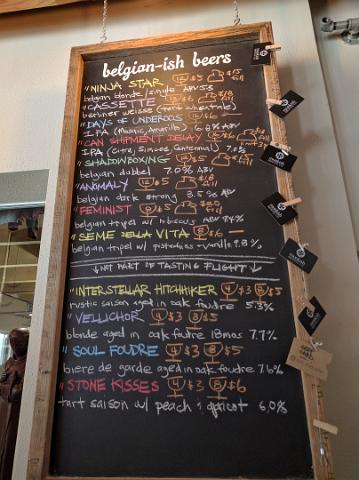 belgian-ish beers
"NINJA STAR
belgian blonde/single ABV 5.8
"CASSETTE
berliner weisse (tart wheat ale)
"DAYS OF UNDERDOG $6
IPA (Mosaic, Amarillo) 6.8% ABV
"CAN SHIPMENT DELAY $6
IPA (Citra, Simcoe, Centennial)
"SHADOWBOXING $5
belgian dubbel 7.0% ABV
"ANOMALY $5
belgian dark strong ABV
"FEMINIST $5
belgian tripel w/ hibiscus ABV
"SEME DELLA VITA 8 $6 —
belgian tripel w/ pistachios + vanilla 9.8%
↓NOT PART OF TASTING FLIGHT↓
"INTERSTELLAR HITCHHIKER 4 $3 8 $5
rustic saison aged in oak foudre 5.3%
"VELLICHOR 4 $3 8 $5
blonde aged in oak foudre 18mos 7.7%
"SOUL FOUDRE 4 $3 8 $5
biere de garde aged in oak foudre 7.6%
"STONE KISSES 4 $3 8 $6
tart saison w/ peach & apricot 6.0%